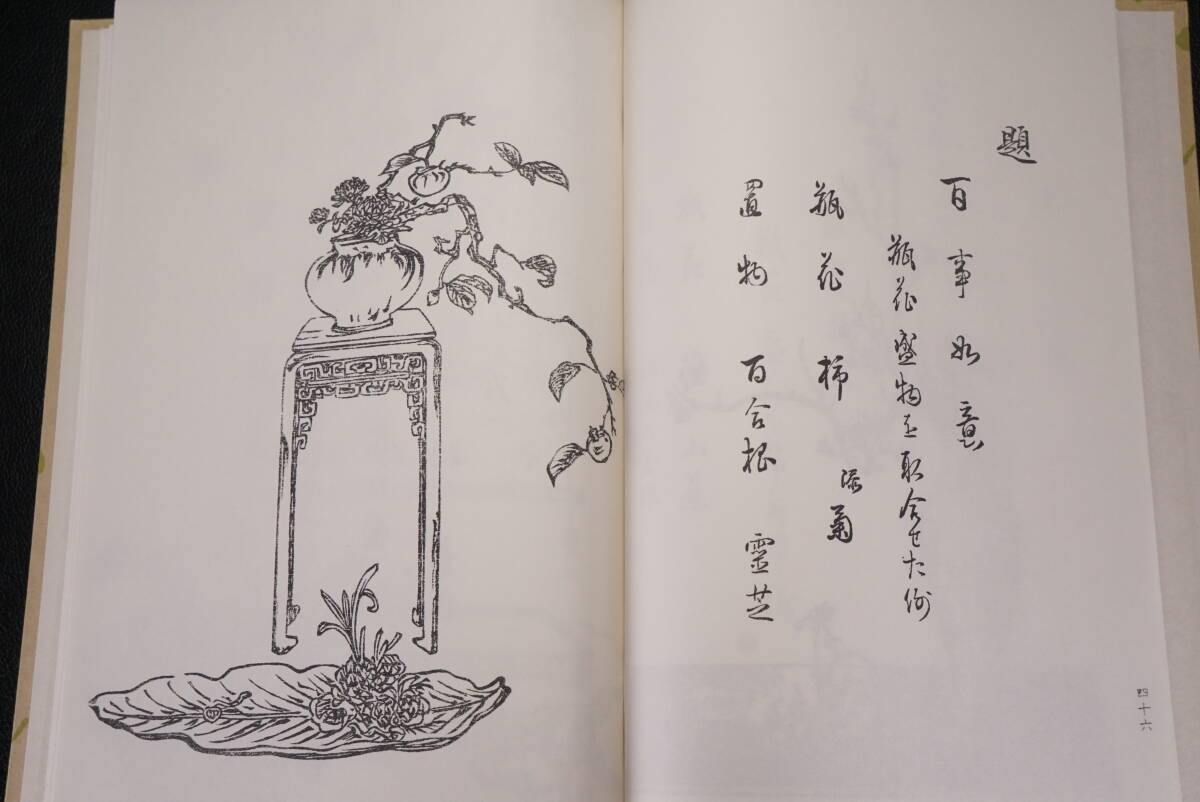 題
百事如意
瓶花盛物を取合せた例
瓶花 柿 添菊
置物 百合根 靈芝
四十六